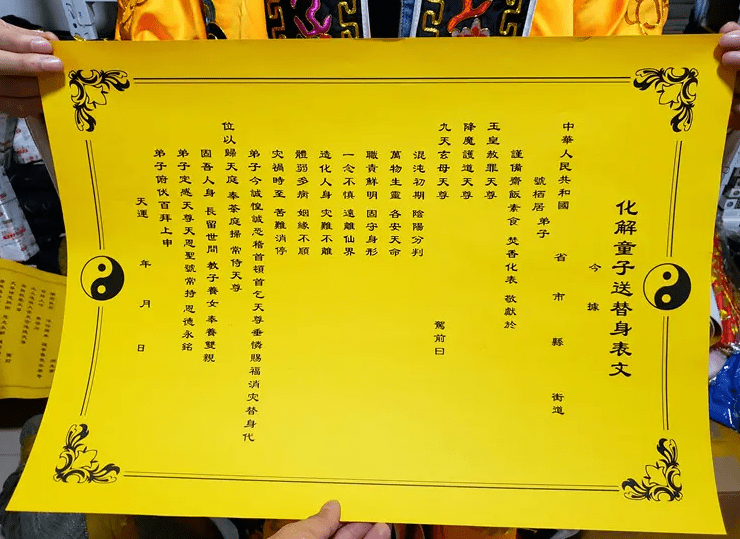 化解童子送替身表文
今據
中華人民共和國 省 市 縣 街道
號栖居 弟子
謹備齋飯素食 焚香化表 敬獻於
玉皇赦罪天尊
降魔護道天尊
九天玄母天尊 駕前曰
混沌初期 陰陽分判
萬物生靈 各安天命
職責鮮明 固守身形
一念不慎 遠離仙界
造化人身 灾難不離
體弱多病 姻緣不順
灾禍時至 苦難消停
弟子今誠惶誠恐稽首頓首乞天尊垂憐賜福消灾替身代
位以歸天庭 奉茶庭操 常侍天尊
固吾人身 長留世間 教子養女 奉養雙親
弟子定感天尊天恩聖號常持 恩德永銘
弟子俯伏百拜上申
天運 年 月 日